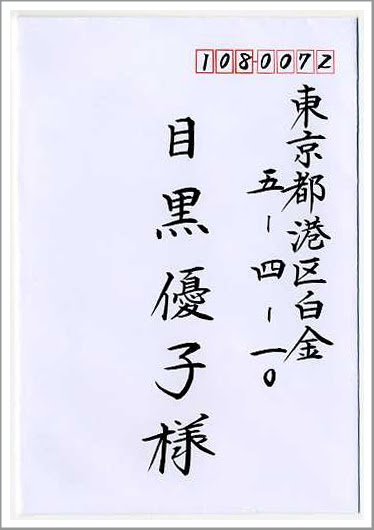 1080072
東京都港区白金
五-四-一〇
目黒優子様